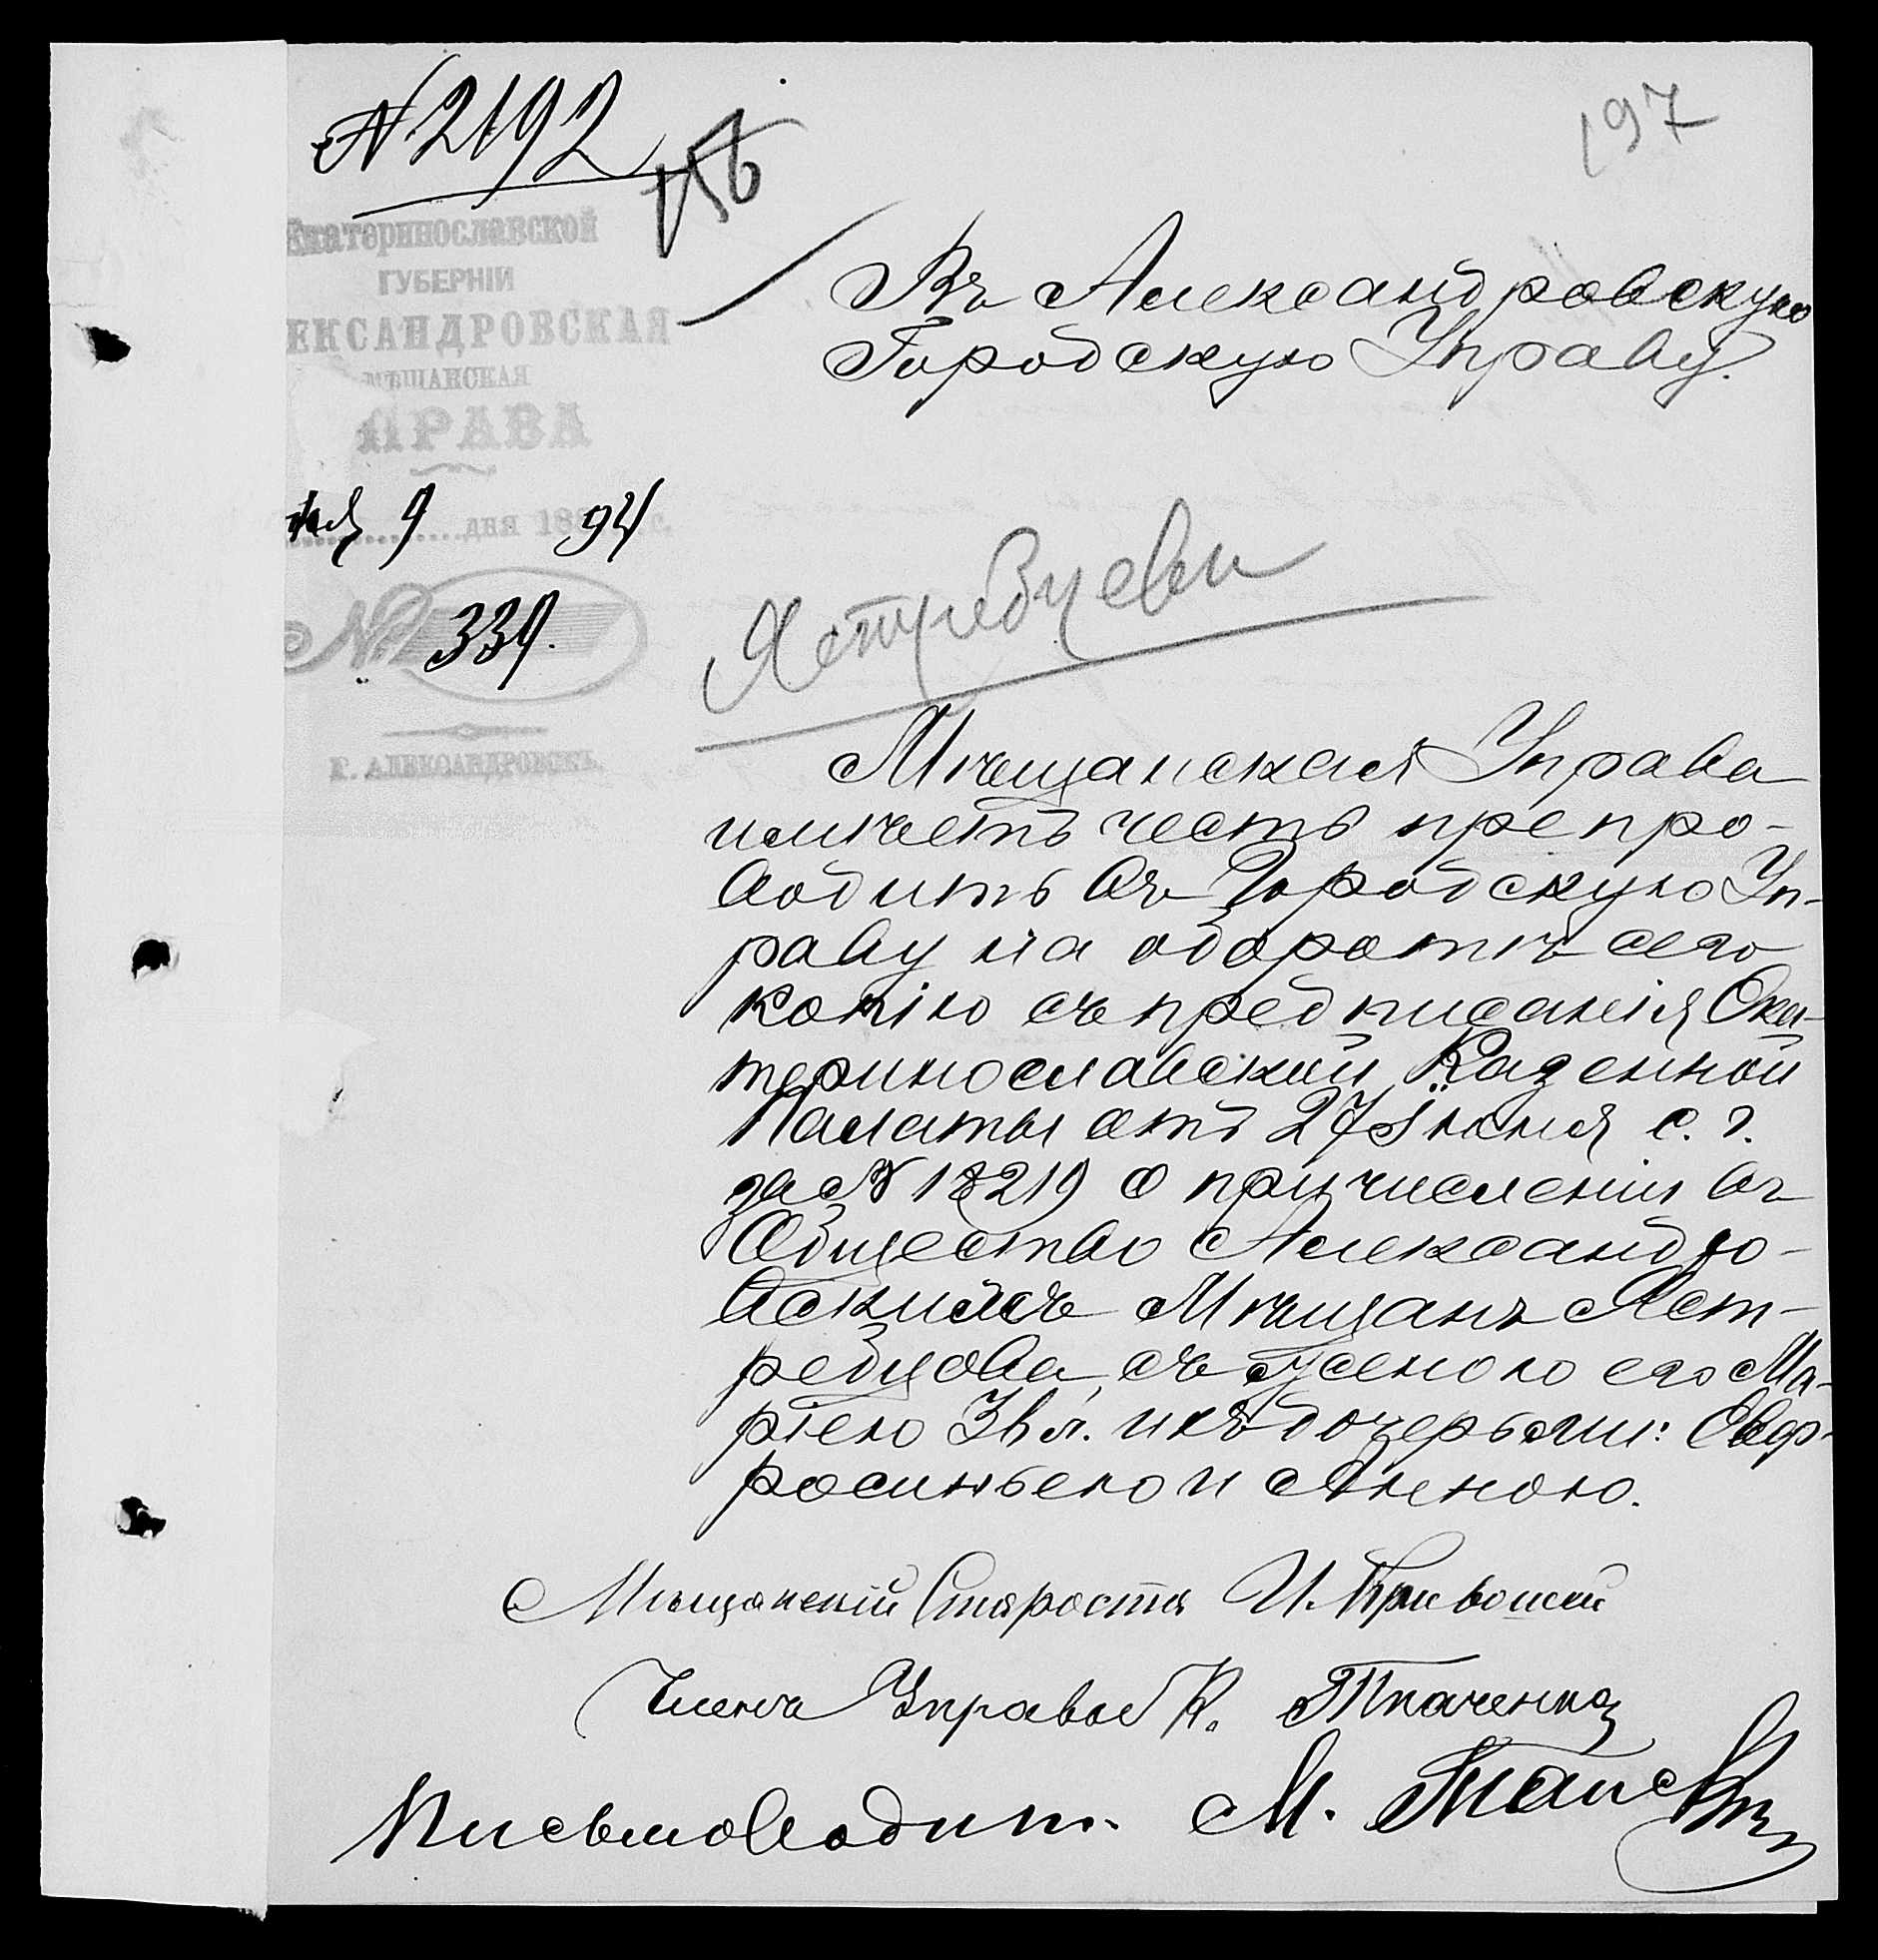 № 2192
197
Екатеринославской
ГУБЕРНІИ
ЕКСАНДРОВСКАЯ
МѢЩАНСКАЯ
ПРАВА
9 дня 1894 г.
№ 339.
г. АЛЕКСАНДРОВСКЪ.
Въ Александровскую
Городскую Управу.
Ястребцевы
Мѣщанская Управа
имѣетъ честь препро-
водить въ Городскую Уп-
раву на оборотѣ сего
копію съ предписанія Ека-
теринославской Казенной
Палаты отъ 27 Іюня с. г.
за № 18219 о причисленіи въ
Общество Александро-
вскихъ Мѣщанъ Яст-
ребцова, съ женою его Ма-
ріею и дочерьми: Евф-
росиньею и Анною.
Мѣщанскій Староста И.
Членъ Управы К. Ткаченко
Письмоводит. М.